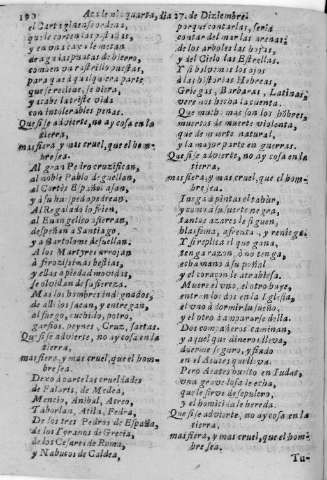 190 Academia quarta, dia 27. de Diziembre.
el
que le corten las
y en vna caxa le metan
de agudas puntas de hierro,
como en va restrillo puestas,
para que à qualquiera parte
que se recline, se hiera,
y acabe la triste vida
con intolerables penas.
Que si se advierte, no ay cosa en la
tierra,
mas fiera, y mas cruel, que el hom-
bre sea.
Al gran Pedro crucifican,
al noble Pablo deguellan,
al Cortès Español asan,
y à su huesped apedrean.
Al Regalado lo frien,
al Euangelico aserran,
despeñan à Santiago,
y a Bartolome desuellan.
A los Martyres arrojan
à ferozissimas bestias,
y ellas apiedad movidas,
se olvidan de su fiereza.
Mas los hombres indignados,
de ellos sacan, y entregan,
al fuego, cuchillo, potro,
garfios, peynes, Cruz, saetas.
Que si se advierte, no ay cosa en la
tierra,
mas fiera, y mas cruel, que el hom-
bre sea.
Dexo à parte las crueldades
de Falaris, de Medea,
Mencio, Anibal, Atreo,
Taborlan, Atila, Fedra,
De los tres Pedros de España,
de los Tyranos de Grecia,
de los Cesares de Roma,
y Nabucos de Caldea,
porque contarlas, seria
contar del mar las arenas,
de los arboles las hojas,
y del Cielo las Estrellas.
Y si bolvemos los ojos
a las historias Hebreas,
Griegas, Barbaras, Latinas,
vere mos hecha la cuenta.
Que mucho mas son los hõbres,
muertos de muerte violenta,
que de muerte natural,
y la mayor parte en guerras.
Que si se advierte, no ay cosa en la
tierra,
mas fiera, y mas cruel, que el hom-
bre sea.
Iuega dpintas el tahur,
y como à su suerte negra,
tantos azares le siguen,
blasfema, afrenta, y reniega.
Y si replica el que gana,
tenga razon, ò no tenga,
echa mano à su puñal
y el coraçon le atrabiesa.
Muere el vno, el otro huye,
entran los dos en la Iglesia,
el vno à dormir su sueño,
y el otro à ampararse della.
Dos compañeros caminan,
y aquel que dinero lleva,
duerme seguro, y fiado
en el Acates que lleva.
Pero Acates buelto en Iudas,
vna grave losa le echa,
que le sirve de sepulcro,
y el homicida le hereda.
Que si se advierte, no ay cosa en la
tierra,
mas fiera, y mas cruel, que el hom-
bre sea.
Tu-